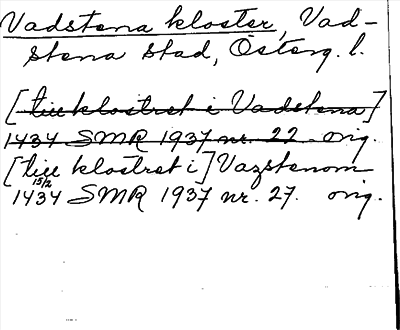 Vadstena kloster, Vad-
stena stad, Österg. l.
[till klostret i Vadstena]
1434 SMR 1937 nr. 22 orig.
[till klostret i] Vazstenom
15/2
1434 SMR 1937 nr. 27. orig.